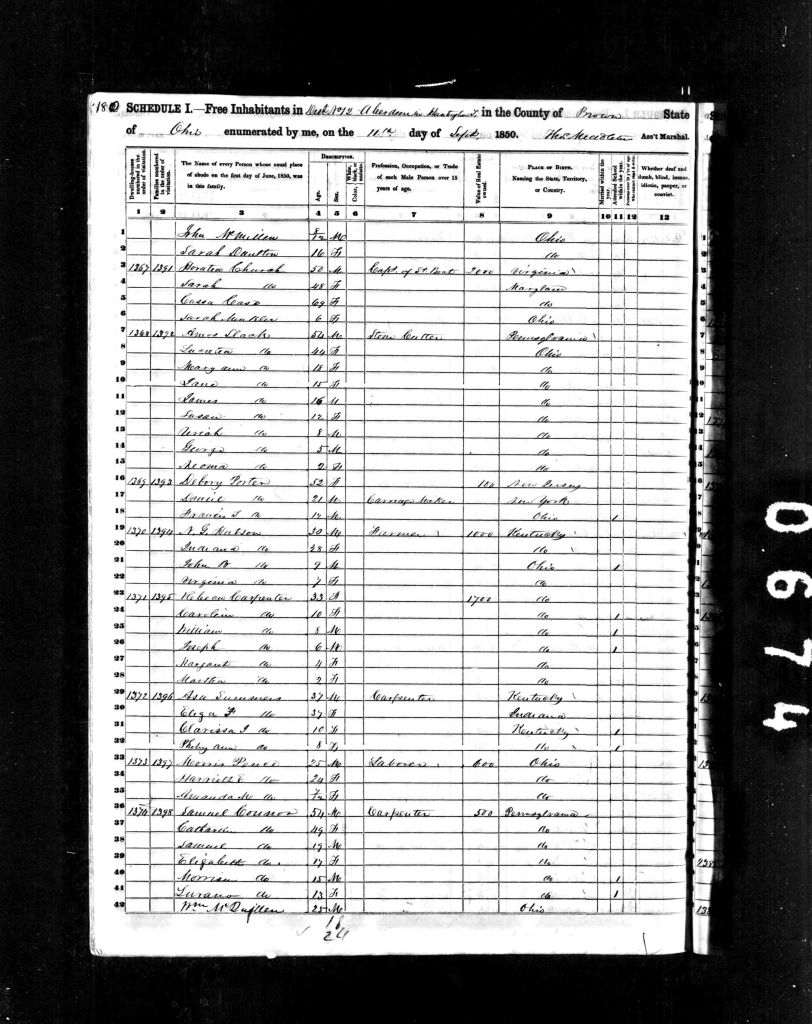 SCHEDULE I.—Free Inhabitants in Dist No 12 Aberdeen in in the County of Brown State
of Ohio enumerated by me, on the 10th day of Sept 1850. Thos Middleton Ass't Marshal.
Dwelling-houses numbered in the order of visitation.
Families numbered in the order of visitation.
The Name of every Person whose usual place of abode on the first day of June, 1850, was in this family.
DESCRIPTION.
Age.
Sex.
Color, White, black, or mulatto.
Profession, Occupation, or Trade of each Male Person over 15 years of age.
Value of Real Estate owned.
PLACE OF BIRTH. Naming the State, Territory, or Country.
Married within the year.
Attended School within the year.
Whether deaf and dumb, blind, insane, idiotic, pauper, or convict.
1 2 3 4 5 6 7 8 9 10 11 12 13
1 John McMillen 8/12 M Ohio
2 Sarah 16 F do
3 1367 1391 Horatio Church 50 M Capt of St Boat 2000 Virginia
4 Sarah do 48 F Maryland
5 Cassa Case 69 F do
6 Sarah 6 F Ohio
7 1368 1392 Amos Slack 54 M Stone Cutter Pennsylvania
8 do 44 F Ohio
9 Mary ann do 18 F do
10 Jane do 15 F do
11 James do 16 M do
12 Susan do 12 F do
13 Uriah do 8 M do
14 George do 5 M do
15 Leoma do 2 F do
16 1369 1393 Debory Porter 52 F 100 New Jersey
17 Daniel do 21 M Carriage Maker New York
18 Francis T do 17 M Ohio 1
19 1370 1394 N. G. Dobson 30 M Farmer 1000 Kentucky
20 Indiana do 28 F do
21 John B do 9 M Ohio 1
22 Virginia do 7 F do
23 1371 1395 Rebecca Carpenter 33 F 1700 do
24 Caroline do 10 F do 1
25 William do 8 M do 1
26 Joseph do 6 M do 1
27 Margaret do 4 F do
28 Martha do 2 F do
29 1372 1396 Asa Summers 37 M Carpenter Kentucky
30 Eliza F do 37 F Indiana
31 Clarissa J do 10 F Kentucky 1
32 Pheby ann do 8 F do 1
33 1373 1397 Morris Pence 25 M Laborer 600 Ohio
34 Harriett E do 24 F do
35 Amanda M do 7/12 F do
36 1374 1398 Samuel Connor 54 M Carpenter 500 Pennsylvania
37 do 49 F do
38 Samuel do 19 M do
39 Elizabeth do 17 F do
40 Morrison do 15 M do 1
41 Lurano do 13 F do 1
42 Wm 25 M Ohio
18
24
0674